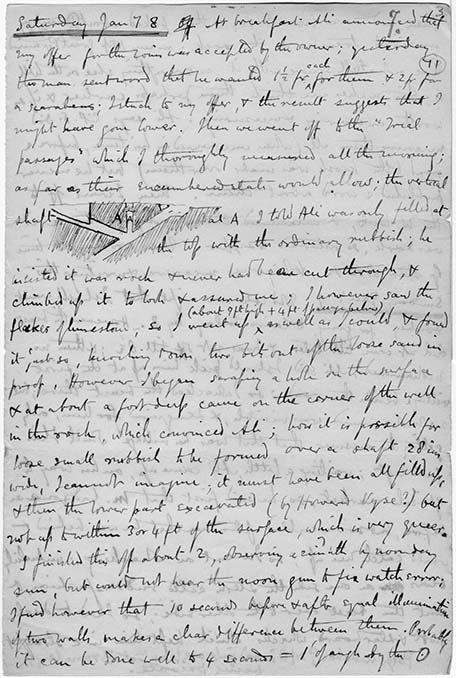 Saturday Jan 7 8 At breakfast Ali announced that
my offer for the coins was accepted by the owner; yesterday
the man sent word that he wanted 1½ fr each for them & 2 fr for
a scarabeus; I stuck to my offer & the result suggests that I
might have gone lower. Then we went off to the "Trial
passages" which I thoroughly measured all the morning;
as far as their encumbered state would allow; the vertical
shaft A at A I told Ali was only filled at
the top with the ordinary rubbish; he
insisted it was rock & never had been cut through, &
climbed up it to look & assured me; I however saw the
(about 9 ft high + 4 ft of passage below)
flakes of limestone, so I went up as well as I could, & found
it just so, knocking down two bits out of the loose sand in
proof. However I began scraping a hole on the surface
& at about a foot deep came on the corner of the well
in the rock, which convinced Ali; how it is possible for
loose small rubbish to be formed over a shaft 28 in
wide, I cannot imagine; it must have been all filled up,
& then the lower part excavated (by Howard Vyse?) but
not up to within 3 or 4 ft of the surface, which is very queer.
I finished this off about 2, observing azimuth by noonday
sun, but could not hear the noon gun to fix watch error;
I find however that 10 seconds before & after equal illumination
of two walls, makes a clear difference between them. Probably
it can be done well to 4 seconds = 1' of angle by the ⊙